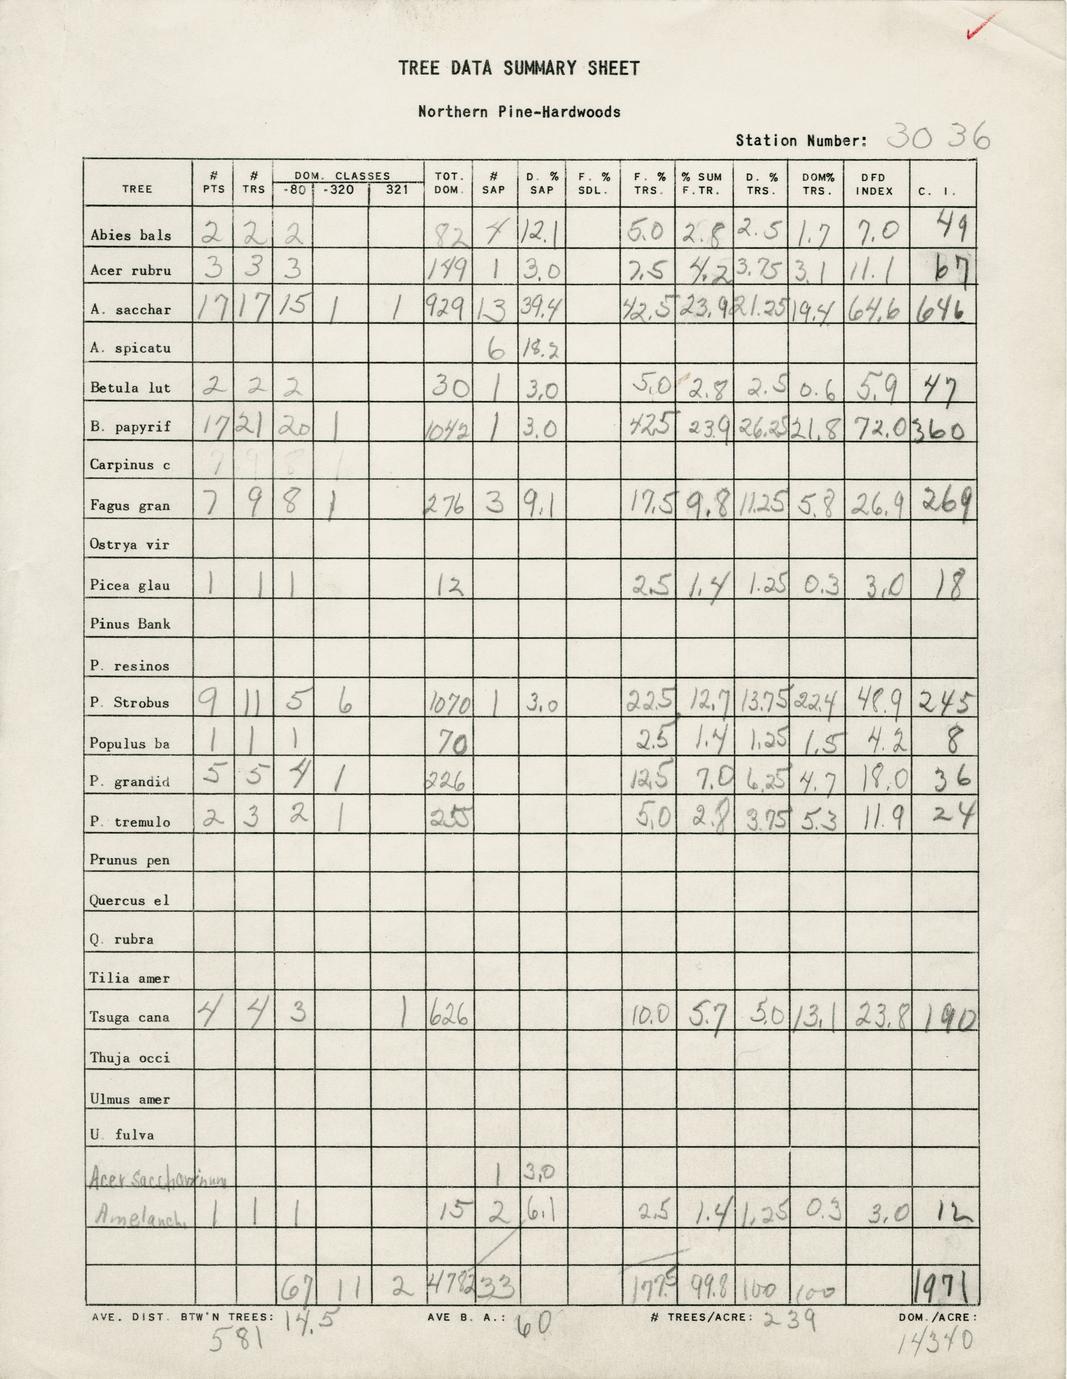 TREE DATA SUMMARY SHEET
Northern Pine-Hardwoods
Station Number: 3036
TREE # PTS # TRS DOM. CLASSES -80 -320 321 TOT. DOM. # SAP D. % SAP F. % SDL. F. % TRS. % SUM F.TR. D. % TRS. DOM% TRS. DFD INDEX C. I.
Abies bals 2 2 2 82 4 12.1 5.0 2.8 2.5 1.7 7.0 49
Acer rubru 3 3 3 149 1 3.0 7.5 4.2 3.75 3.1 11.1 67
A. sacchar 17 17 15 1 1 929 13 39.4 42.5 23.9 21.25 19.4 64.6 646
A. spicatu 6 18.2
Betula lut 2 2 2 30 1 3.0 5.0 2.8 2.5 0.6 5.9 47
B. papyrif 17 21 20 1 1042 1 3.0 42.5 23.9 26.25 21.8 72.0 360
Carpinus c
Fagus gran 7 9 8 1 276 3 9.1 17.5 9.8 11.25 5.8 26.9 269
Ostrya vir
Picea glau 1 1 1 12 2.5 1.4 1.25 0.3 3.0 18
Pinus Bank
P. resinos
P. Strobus 9 11 5 6 1070 1 3.0 22.5 12.7 13.75 22.4 48.9 245
Populus ba 1 1 1 70 2.5 1.4 1.25 1.5 4.2 8
P. grandid 5 5 4 1 226 12.5 7.0 6.25 4.7 18.0 36
P. tremulo 2 3 2 1 255 5.0 2.8 3.75 5.3 11.9 24
Prunus pen
Quercus el
Q. rubra
Tilia amer
Tsuga cana 4 4 3 1 626 10.0 5.7 5.0 13.1 23.8 190
Thuja occi
Ulmus amer
U. fulva
Acer saccharinum 1 3.0
Amelanch 1 1 1 15 2 6.1 2.5 1.4 1.25 0.3 3.0 12
67 11 2 4782 33 177.5 99.8 100 100 1971
AVE. DIST. BTW'N TREES: 14.5 AVE B. A.: 60 # TREES/ACRE: 239 DOM./ACRE:
581 14340